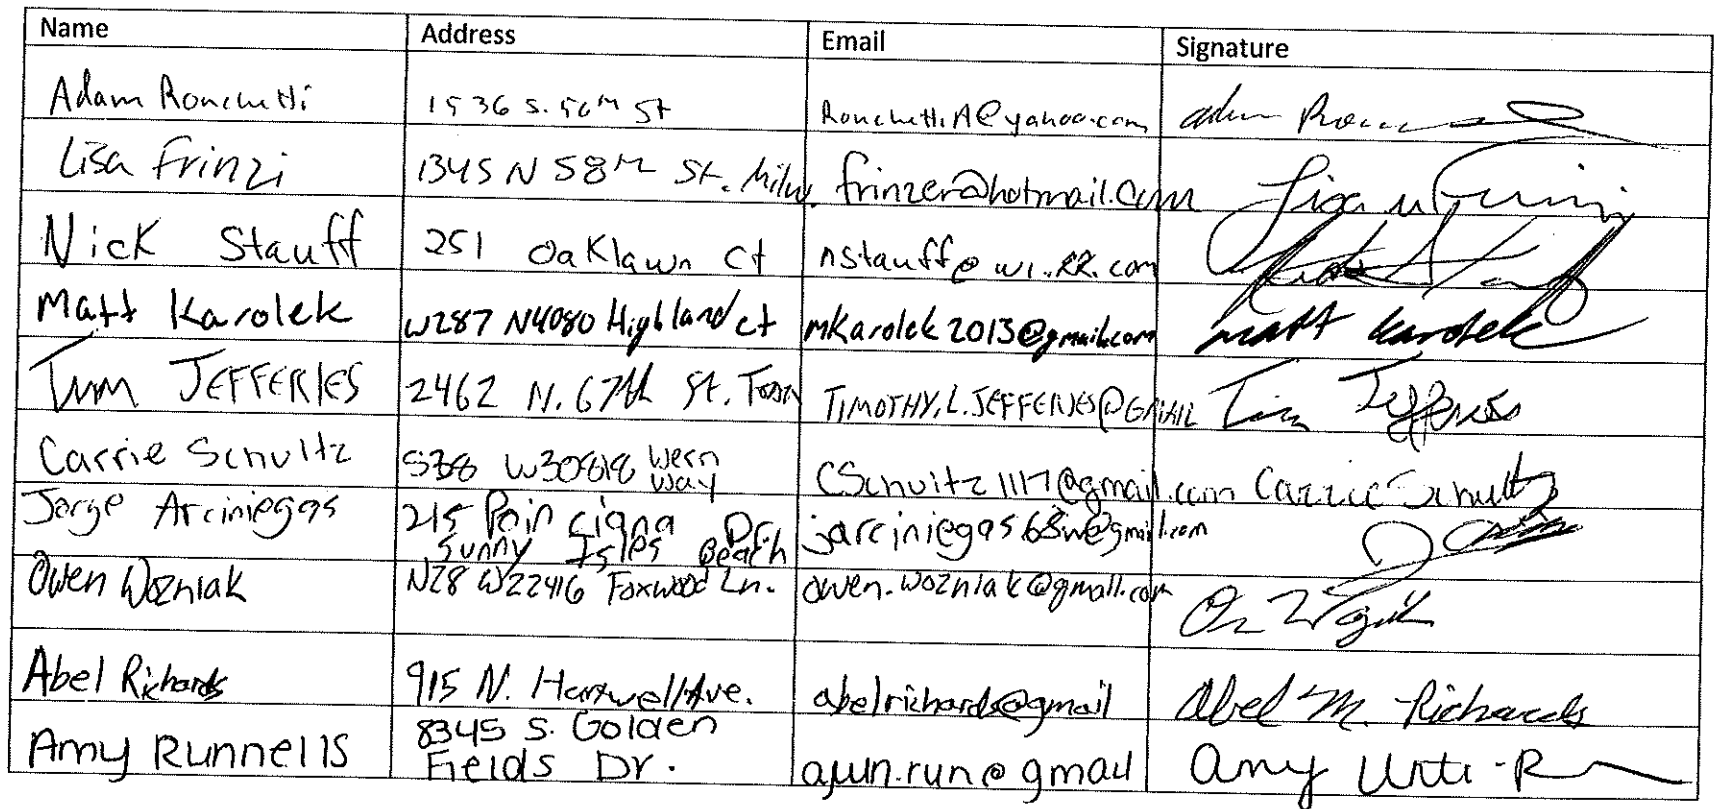 Name Address Email Signature
Adam Ronchetti 1536 S. 56th St RonchettiA@yahoo.com Adam
Lisa Frinzi 1345 N 58th St. Milw. frinzer@hotmail.com Lisa M Frinzi
Nick Stauff 251 Oaklawn Ct nstauff@wi.RR.com
Matt Karolek W287 N4080 Highland ct mkarolek2013@gmail.com matt karolek
Tim JEFFERIES 2462 N. 67th St. Tosa TIMOTHY.L.JEFFERIES@GMAIL Tim Jefferies
Carrie Schultz W30818 Wern Way CSchultz1117@gmail.com Carrie Schultz
Jorge Arciniegas 215 Poinciana Dr.
Sunny Isles Beach jarciniegas68w@gmail.com
Owen Wozniak N28 W22416 Foxwood Ln. owen.wozniak@gmail.com
Abel Richards 915 N. Hartwell Ave. abelrichards@gmail Abel M. Richards
Amy Runnells 8345 S. Golden
Fields Dr. Amy